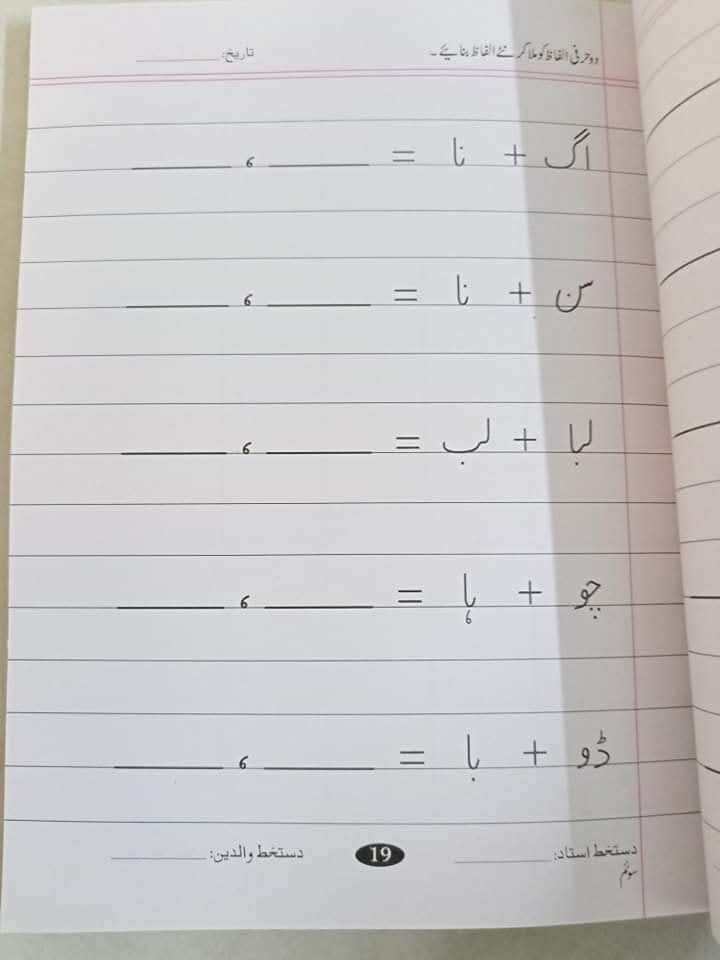 دو حرفی الفاظ کو ملا کر نئے الفاظ بنائیے۔ تاریخ: ________
اگ + نا = ________ ، ________
سن + نا = ________ ، ________
لبا + لب = ________ ، ________
چو + ہا = ________ ، ________
ڈو + با = ________ ، ________
دستخط استاد: ________ 19 دستخط والدین: ________
سوئم